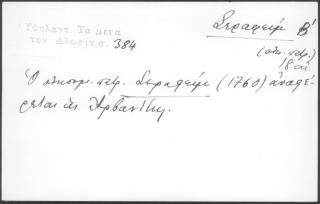 Υψηλαντ Τα μετα
την Αλωσιν σ. 384
Σεραφείμ Β΄
(οἰκ. πατρ.)
18 αἰ.
Ὁ οἰκουμ. πατρ. Σεραφείμ (1760) ἀναφέ-
ρεται ὡς Ἀρβανίτης.